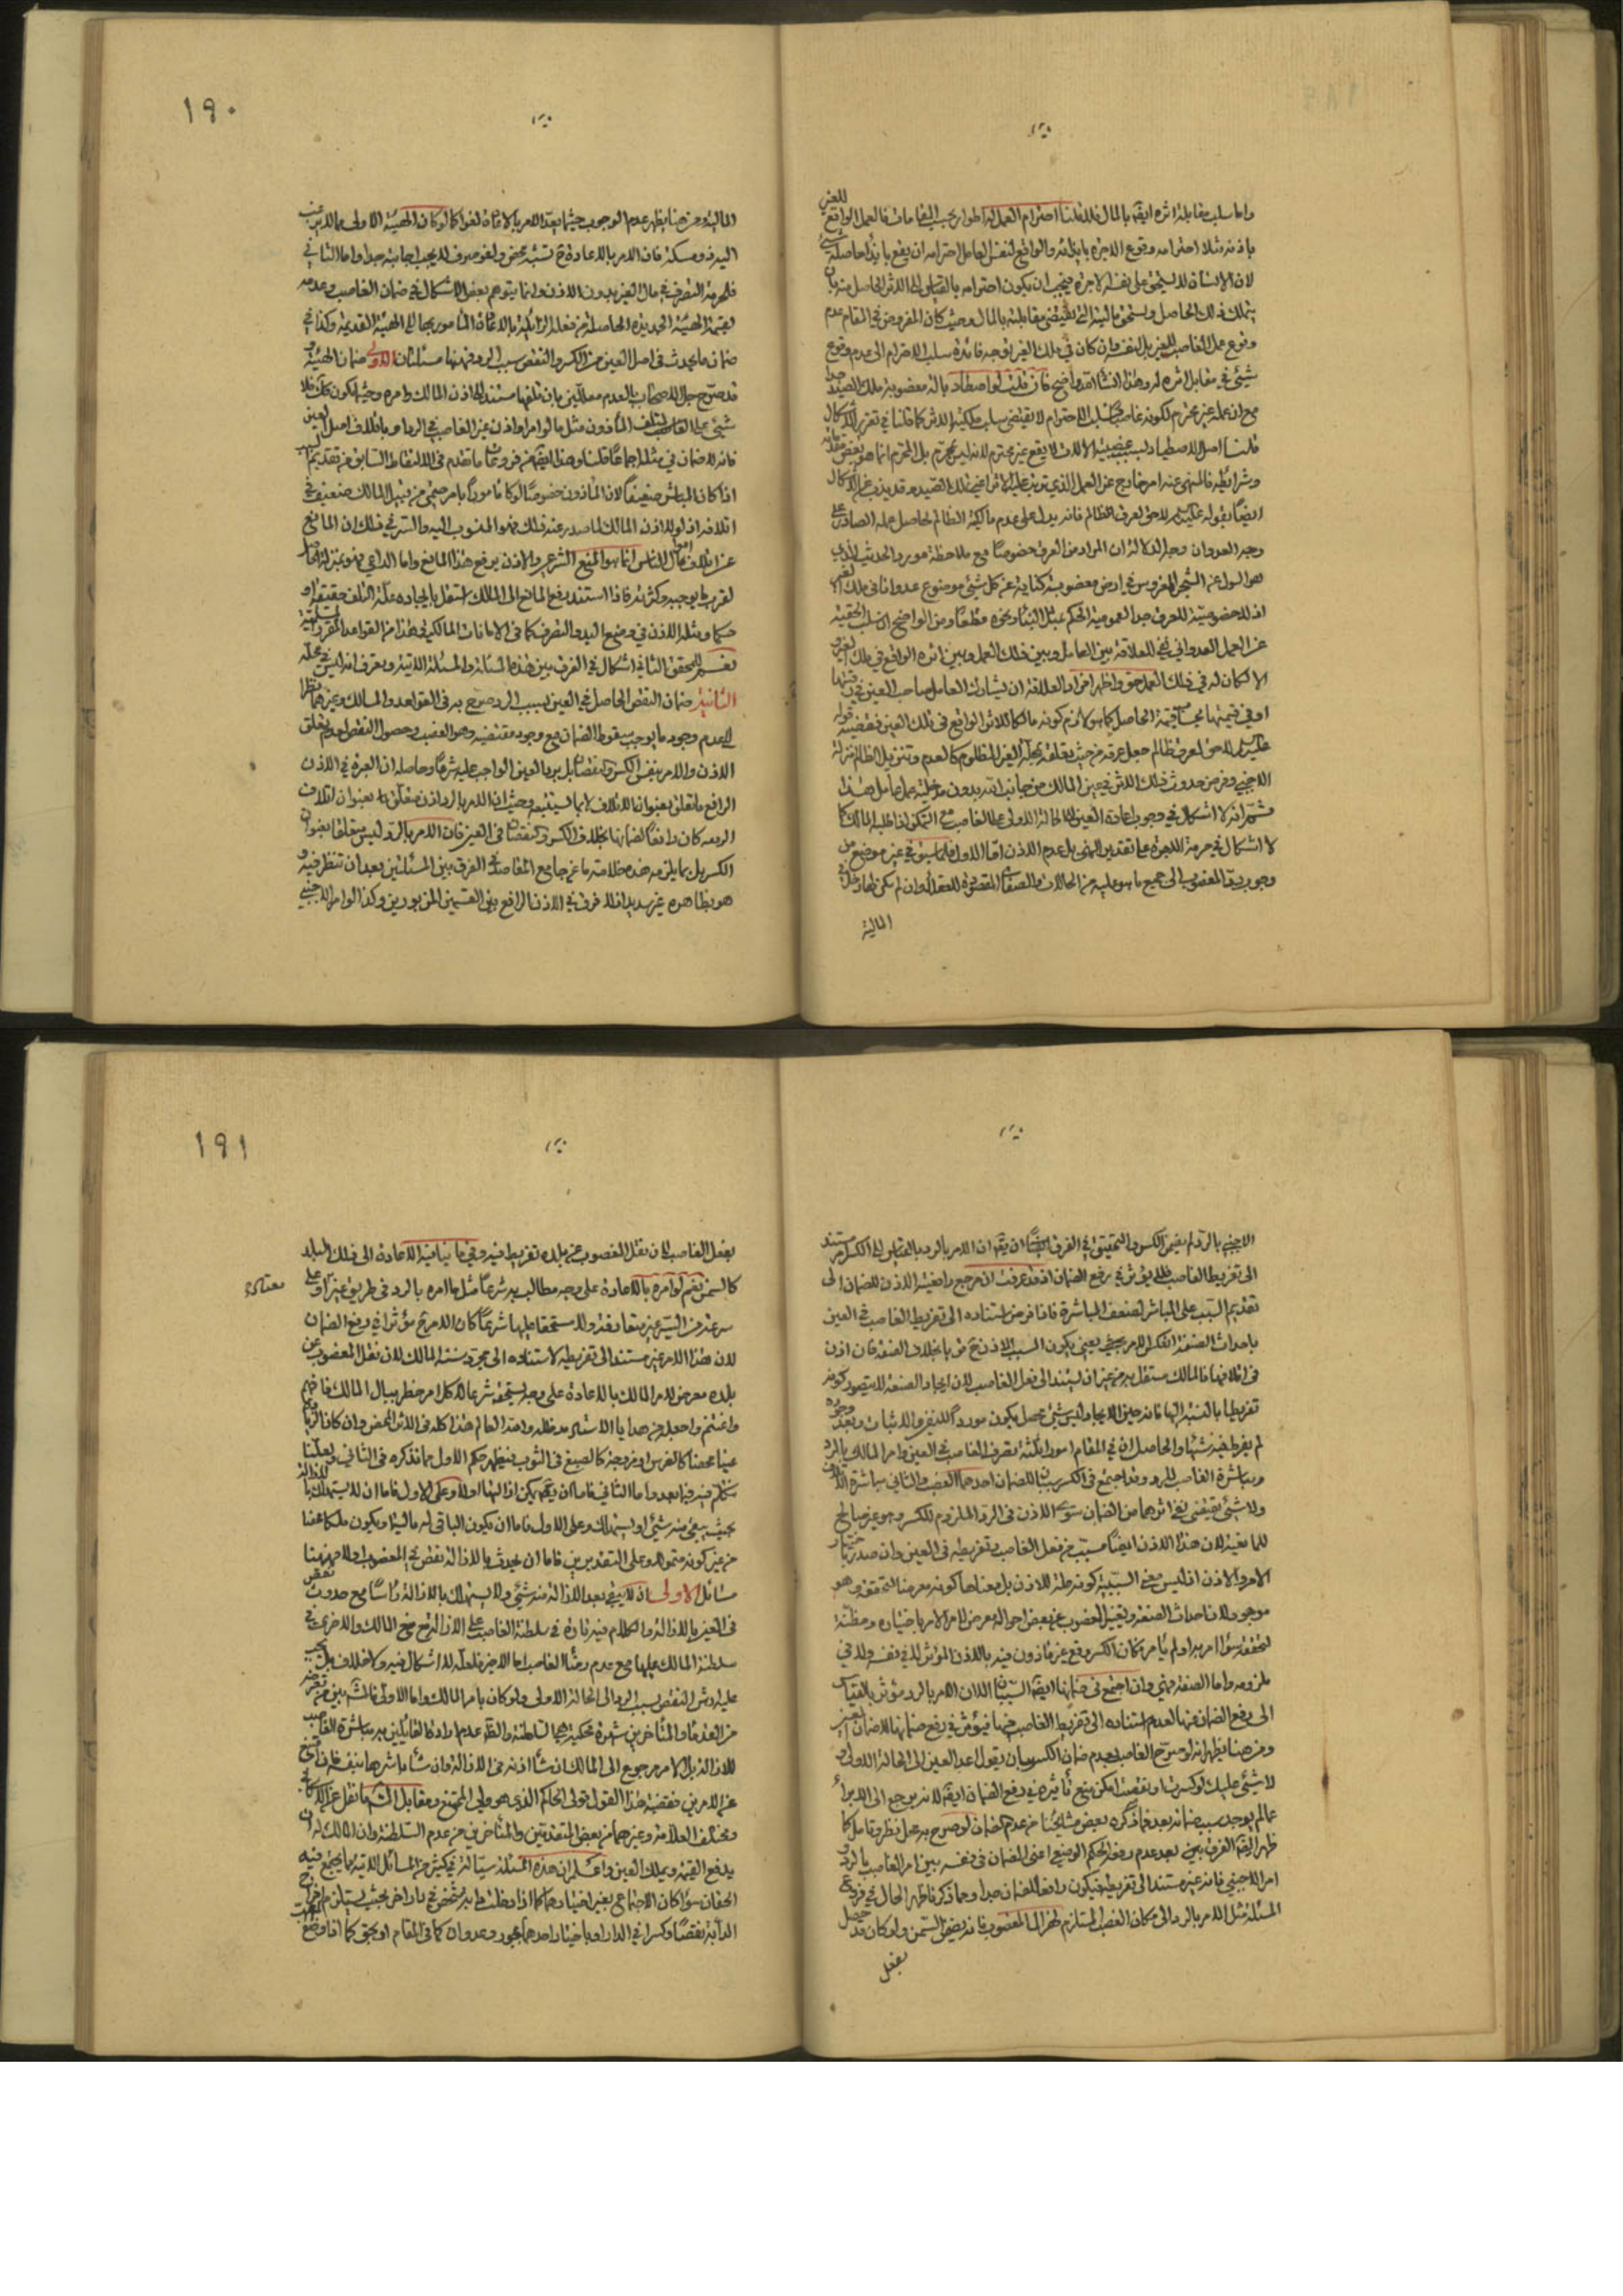 واما سلب مقابلة اثره ايضا بالمال فلما قلنا احترام العمل له اطوار بحسب المقامات فالعمل الواقع للغير
باذنه مثلا احترامه وقوع الاجرة بازائه والواقع لنفس العامل احترامه ان يقع بازاء حاصله شئ
لان الانسان لا يستحق على نفسه الاجرة فيجب ان يكون احترامه بالقياس الى الاثر الحاصل منه بان
يتملك ذلك الحاصل ويستحق مالية التي يقتضي مقابلته بالمال وحيث كان المفروض في المقام عدم
وقوع عمل الغاصب للغير بل لنفسه وان كان في ملك الغير توجه فائدة سلب الاحترام الى عدم وقوع
شئ في مقابل اثره له وهذا انشاء الله واضح فان قلت لو اصطاد بالة مغصوبة ملك الصيد جدا
مع ان عمله غير محترم لكونه غاصبا سلب الاحترام لا يقتضي سلب ملكية الاثر كما قلنا في تقرير الاشكال
قلنا اصل الاصطياد بسبب غصبية الالات لا يقع غير محترم لانه ليس بمحرم بل المحرم انما هو بعض مقدماته
وشرائطه فالمنهي عنه امر خارج عن العمل الذي ترتب عليه الاثر اعني تملك الصيد وقد يذب عن الاشكال
ايضا بقوله عليه السلم لا حق لعرق ظالم فانه يدل على عدم مالكية الظالم لحاصل عمله الصادر على
وجه العدوان وجه الدلالة ان المراد من العرق خصوصا مع ملاحظة مورد الحديث الذي
هو السؤال عن الشجر المغروس في ارض مغصوبة كناية عن كل شئ موضوع عدوانا في ملك الغير
اذ لا خصوصية للعرق جدا لعموم الحكم مثل البناء ونحوه قطعا ومن الواضح ان سلب الحقية
عن العمل العدواني نفي للعلاقة بين العامل وبين ذلك العمل وبين اثره الواقع في ملك الغير
الا لكان له في ذلك العمل حق واظهر افراد العلاقة ان يشارك العامل صاحب العين في رقبتها
او في قيمتها بحساب قيمة الحاصل كما هو لازم كونه مالكا للاثر الواقع في تلك العين فقضية قوله
عليه السلم لا حق لعرق ظالم جعل عرقه من حيث تعلقه بمحله الغير المظلوم كالعدم وتنزيل الظالم منزلة
الاجنبي وفرض حدوث ذلك الاثر في عين المالك من جانب الله بدون مدخلية عمل عامل هذا
ثم انه لا اشكال في وجوب اعادة العين الى الحالة الاولى على الغاصب مع التمكن اذا طلبه المالك كما
لا اشكال في حرمة الاجرة على تقدير النهي بل عدم الاذن اما الاول فلما سبق في غير موضع من
وجوب رد المغصوب الى جميع ما هو عليه من الحالات والصفات المقصودة للعقلاء وان لم يكن لها دخل في
المالية
١٩٠
المالية ومن هنا يظهر عدم الوجوب حيثما يعد الامر بالاعادة لغوا كما لو كان الهيئة الاولى مما لا يرغب
اليه ذو مسكة فان الامر بالاعادة ح تشبه محض ولغو صرف لا يجب اجابته جدا واما الثاني
فلحرمة التصرف في مال الغير بدون الاذن وانما يتوهم بعض الاشكال في ضمان الغاصب وعدمه
لقيمة الهيئة الجديدة الحاصلة من فعله الزائلة بالاعادة المأمور بها الى الهيئة القديمة وكذا في
ضمان ما يحدث في اصل العين من الكسر والنقص بسبب الرد فههنا مسئلتان الاولى ضمان الهيئة وقد
قد صرح جل الاصحاب بالعدم معللين بان تلفها مستند الى اذن المالك وامره وحيث يكون كذلك فلا
شئ على الغاصب المتلف المأذون مثل ما لو امر او اذن غير الغاصب في الرد او باتلاف اصل العين
فانه لا ضمان في مثله اجماعا قلنا وهذا ايضا من فروعات ما تقدم في الالتقاط السابق من تقديم السبب
اذا كان المباشر ضعيفا لان المأذون خصوصا لو كان مأمورا بامر صحيح من قبل المالك ضعيف في
اتلافه اذ لولا اذن المالك لما صدر عنه ذلك فهو المنسوب اليه والسر في ذلك ان المانع
عن اتلاف اموال الناس انما هو المنع الشرعي والاذن يرفع هذا المانع واما الداعي فهو بمنزلة الحاصل
لقرب ما يوجبه وكثرته فاذا استند رفع المانع الى المالك استقل بايجاده علة التلف حقيقة او
حكما ومثله الاذن في وضع اليد والتصرف كما في الامانات المالكية في هذا من القواعد المقررة المسلمة
نعم للمحقق الثاني اشكال في الفرق بين هذه المسئلة والمسئلة الاتية ويعترف انه ليس في محله
الثانية ضمان النقص الحاصل في العين بسبب الرد صرح به في القواعد والمسالك وغيرهما نظرا
الى عدم وجود ما يوجب سقوط الضمان مع وجود مقتضيه وهو الغصب وحصول النقص لعدم تعلق
الاذن والامر بنفس الكسر والنقصان بل برد العين الواجب عليه شرعا وحاصله ان العبرة في الاذن
الرافع ما تعلق بعنوان الاتلاف لا بما يستتبعه وحيث ان الامر بالرد اذن متعلق به بعنوان اتلاف
الصنعة كان دافعا لضمانها بخلاف الكسر والنقصان في العين فان الامر بالرد ليس متعلقا بعنوان
الكسر بل بما يلزمه هذه خلاصة ما عن جامع المقاصد في الفرق بين المسئلتين بعد ان تنظر فيه و
هو بظاهره غير سديد اذ لا فرق في الاذن الرافع بين القسمين المزبورين وكذا لو امر الاجنبي
الاجنبي بالرد لم يضمن الكسر والتحقيق في الفرق ايضا ان يقال ان الامر بالرد بالقياس الى الكسر امر مستند
الى تفريط الغاصب فلا يؤثر في رفع الضمان اذ قد عرفت ان مرجع رافعية الاذن للضمان الى
تقديم السبب على المباشر لضعف المباشرة فاذا فرض استناده الى تفريط الغاصب في العين
باحداث الصنعة انعكس الامر يعني يكون السبب الاذن ح ضعيفا بخلاف الصنعة فان اذن
في اتلافها فالمالك مستقل به من غير ان يستند الى فعل الغاصب لان ايجاد الصنعة لا يتصور كونه
تفريطا بالنسبة اليها فانه حين الايجاد ليس شئ محصل يكون موردا للنفي والاثبات وبعد وجوده
لم يفرط فيه شيئا والحاصل ان في المقام امورا ثلثة تصرف الغاصب في العين وامر المالك بالرد
ومباشرة الغاصب للرد وقد اجتمع في الكسر سببان للضمان احدهما الغصب والثاني مباشرة الاتلاف
ولا شئ يقتضي نفي اثرهما من الضمان سوى الاذن في الرد الملزوم للكسر وهو غير صالح
للمانعية لان هذا الاذن ايضا مسبب من فعل الغاصب وتفريطه في العين وان صدر باختيار
الامر والاذن اذ ليس معنى السببية كونه علة للاذن بل معناها كونه معرضا لتحققه وهو
موجود لان احداث الصنعة وتغييب المغصوب عن بعض احواله معرض لامر الامر باختياره ومظنة
لتحققه سواء امر به او لم يأمر فكان الكسر وقع عن مأذون فيه بالاذن المؤثر لا في نفسه ولا في
ملزومه واما الصنعة فهي وان اجتمع في ضمانها ايضا السببان الا ان الامر بالرد مؤثر بالقياس
الى رفع الضمان عنها لعدم استناده الى تفريط الغاصب فيها فيؤثر في رفع ضمانها لا ضمان العين
ومن هنا يظهر انه لو صرح الغاصب بعدم ضمان الكسر بان يقول اعد العين الى الحالة الاولى و
لا شئ عليك لو كسرتها او نقصت امكن منع تأثيره في رفع الضمان ايضا لانه يرجع الى الابراء
عما لم يوجد سبب ضمانه بعد فما ذكره بعض مشايخنا من عدم الضمان لو صرح به محل نظر وتأمل كما
ظهر ايضا الفرق بين بعد عدم رفع الحكم الوضعي اعني الضمان في نفسه بين امر الغاصب بالرد و
امر الاجنبي فانه غير مستند الى تفريطه فيكون رافعا للضمان جدا ومما ذكر ظاهر الحال في فروع
المسئلة مثل الامر بالرد الى مكان الغصب المستلزم لهزال المغصوب فانه يضمن السمن ولو كان قد حصل
بفعل
١٩١
بفعل الغاصب لان نقل المغصوب عن بلده تفريط فيه وفي ما ينافيه الاعادة الى ذلك البلد
كالسمن نعم لو امره بالاعادة على وجه مطالب به شرعا مثل ما امره بالرد في طريق غير أو على
معتاد
سرعة من السير غير متعارفة ولا مستحقا عليها شرعا كان الامر ح مؤثرا في رفع الضمان
لان هذا الامر غير مستند الى تفريطه لاستناده الى مجرد مشية المالك لان نقل المغصوب عن
بلده معرض لامر المالك بالاعادة على وجه يستحقه شرعا لا كل امر خطر ببال المالك فافهم
واغتنم واجعله من هدايا الاستاد مد ظله وهذا العالم هذا كله في الاثر المحض وان كان الزائد
عينا محضا كالغرس او ممزوجة كالصبغ في الثوب فيظهر حكم الاول مما نذكره في الثاني ولعلنا
نتكلم فيه فيما بعد واما الثاني فاما ان يمكن ازالتها او لا وعلى الاول فاما ان لا يستهلك بالازالة
بحيث يبقى منه شئ او يستهلك وعلى الاول فاما ان يكون الباقي له مالية او يكون ملكا محضا
من غير كونه متمولا وعلى التقديرين فاما ان يحدث بالازالة نقص في المغصوب او لا فههنا
مسائل الاولى ان يبقى بعد الازالة منه شئ ولا يستهلك بالازالة رأسا مع حدوث نقص
في العين بالازالة والكلام فيه تارة في سلطنة الغاصب على الازالة مع منع المالك والاخرى في
سلطنة المالك عليها مع عدم رضاء الغاصب اما الاخير فلعله لا اشكال فيه ولا خلاف بل يجب
عليه ارش النقص بسبب الرد الى الحالة الاولى ولو كان بامر المالك واما الاول فالمشهور بين من تعرض
من القدماء والمتأخرين شهرة محكية هي السلطنة والظاهر عدم ارادة القائلين به مباشرة الغاصب
للازالة بل الامر مرجوع الى المالك ان شاء اذنه في الازالة وان شاء باشرها بنفسه فان امتنع
عن الامرين فقضية هذا القول تولي الحاكم الذي هو ولي الممتنع ومقابل المشهور ما نقل عن الاسكافي
ومختلف العلامة وغيرهما من بعض المتقدمين والمتأخرين من عدم السلطنة وان المالك له ان
يدفع القيمة ويملك العين واعلم ان هذه المسئلة سيالة في كثير من المسائل الاتية مما يجتمع فيه
الحقان سواء كان الاجتماع بغير اختيارهما كما اذا دخلت دابة شخص في دار اخر بحيث يستلزم اخراج
الدابة نقصا وكسرا في الدار او باختيار احدهما بجور وعدوان كما في المقام او بحق كما اذا وضع